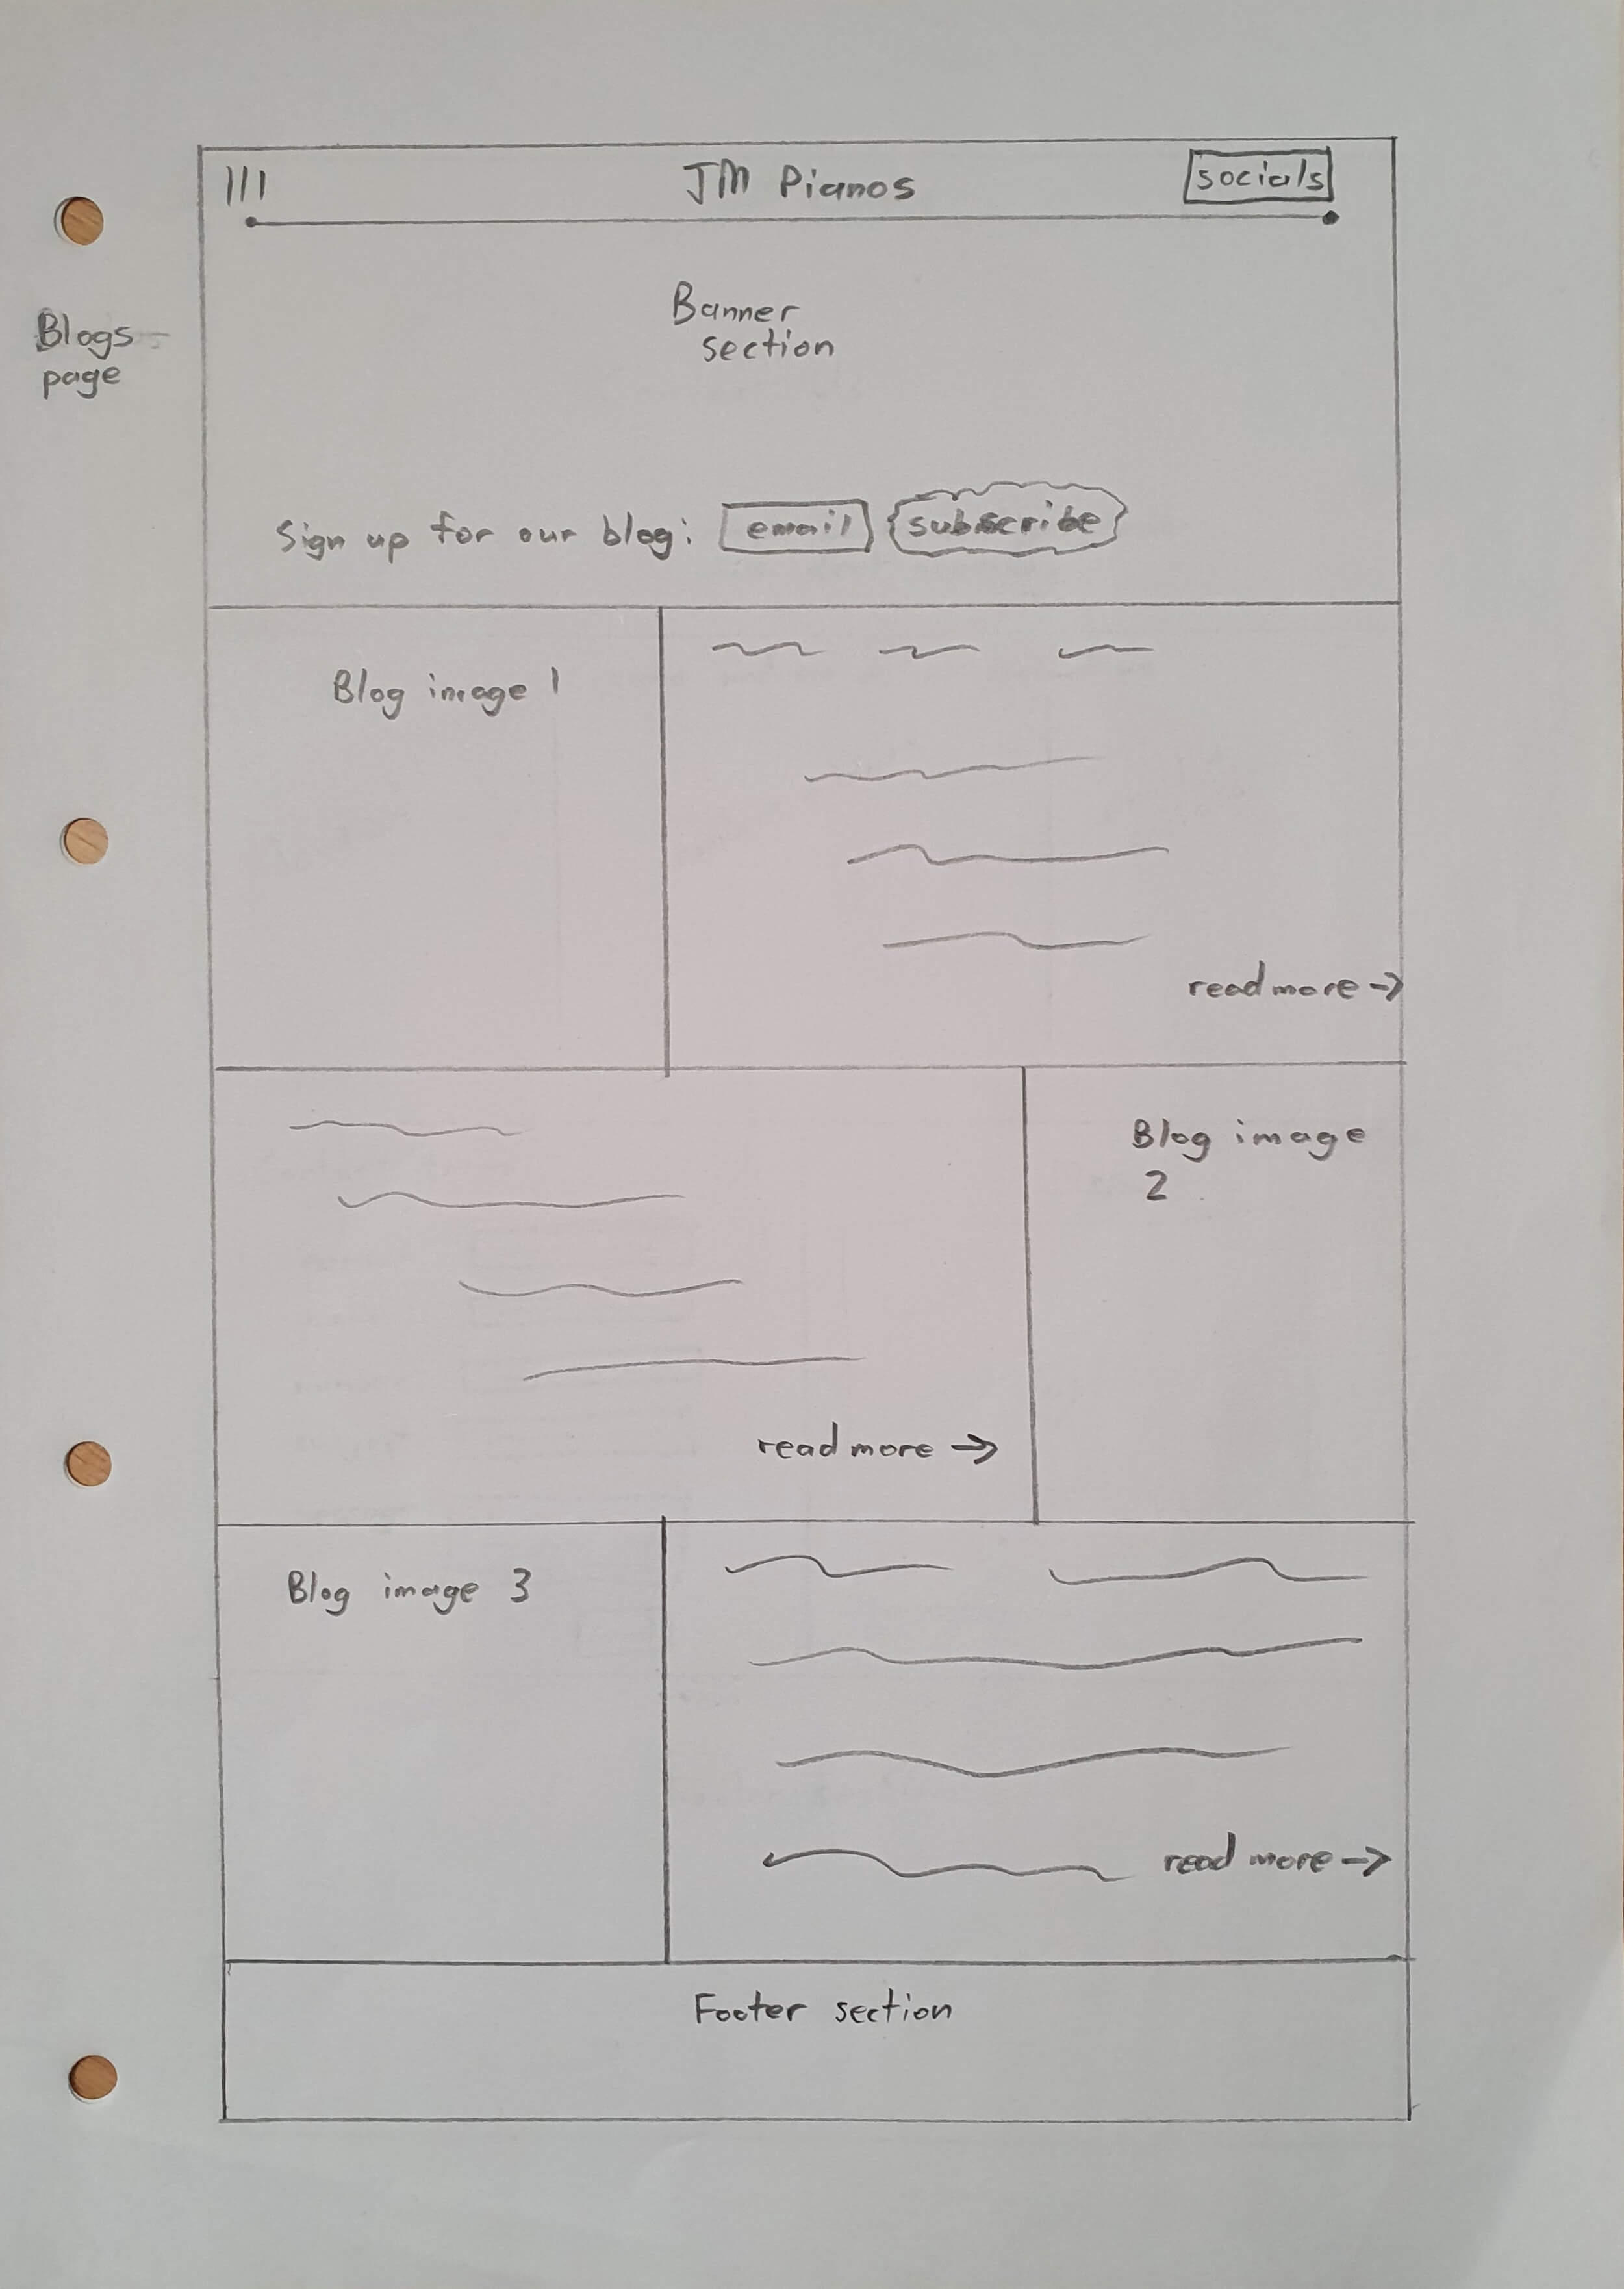 JM Pianos
socials
Blogs
page
Banner
section
Sign up for our blog: email subscribe
Blog image 1
read more →
Blog image
2
read more →
Blog image 3
read more →
Footer section